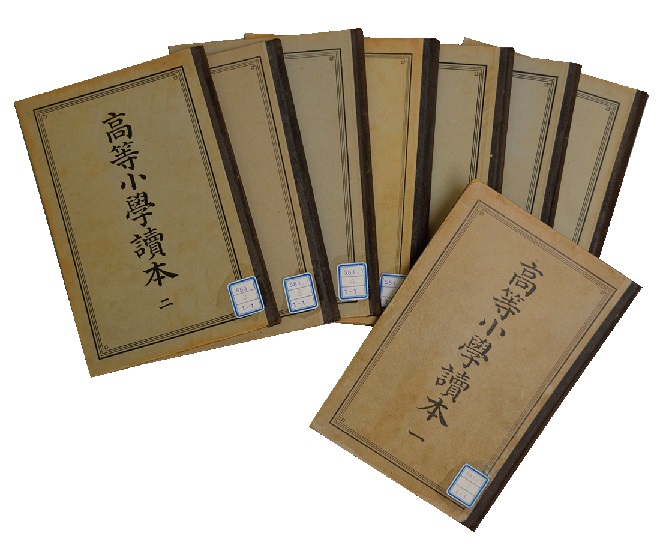 高等小學讀本
二
高等小學讀本
一